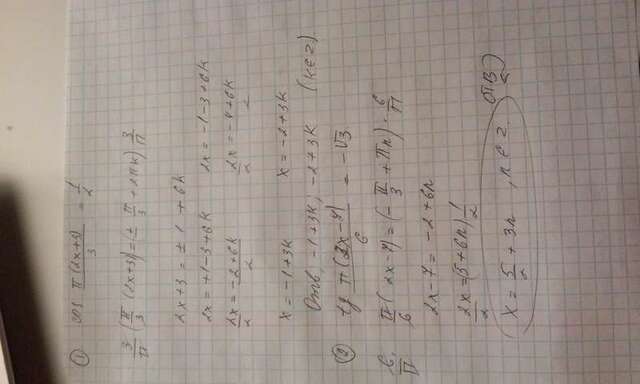 ① cos π(2x+3)/3 = 1/2
3/π (π/3 (2x+3)) = (± π/3 + 2πk) 3/π
2x+3 = ± 1 + 6k
2x = +1-3+6k 2x = -1-3+6k
2x/2 = -2+6k/2 2x/2 = -4+6k/2
x = -1+3k x = -2+3k
Отв; -1+3k; -2+3k (k∈z).
② tg π(2x-7)/6 = -√3
6/π · π/6 (2x-7) = (-π/3 + πn) · 6/π
2x-7 = -2+6n
2x/2 = (5+6n) 1/2
x = 5/2 + 3n, n ∈ z. ОТВ